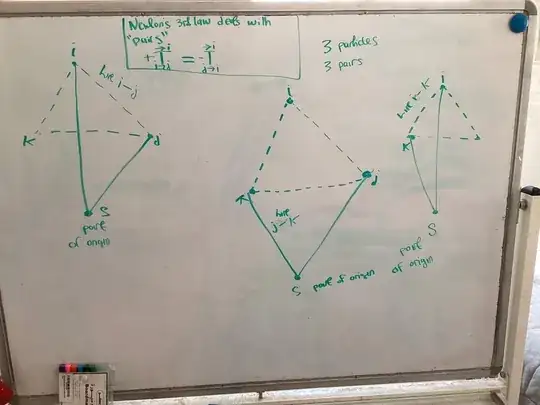 Newton's 3rd law deals with
"pairs"
3 particles
3 pairs
i
line i-j
K
j
S
point
of origin
i
K
j
line
j-K
S point of origin
i
line i-K
K
S
point
of origin